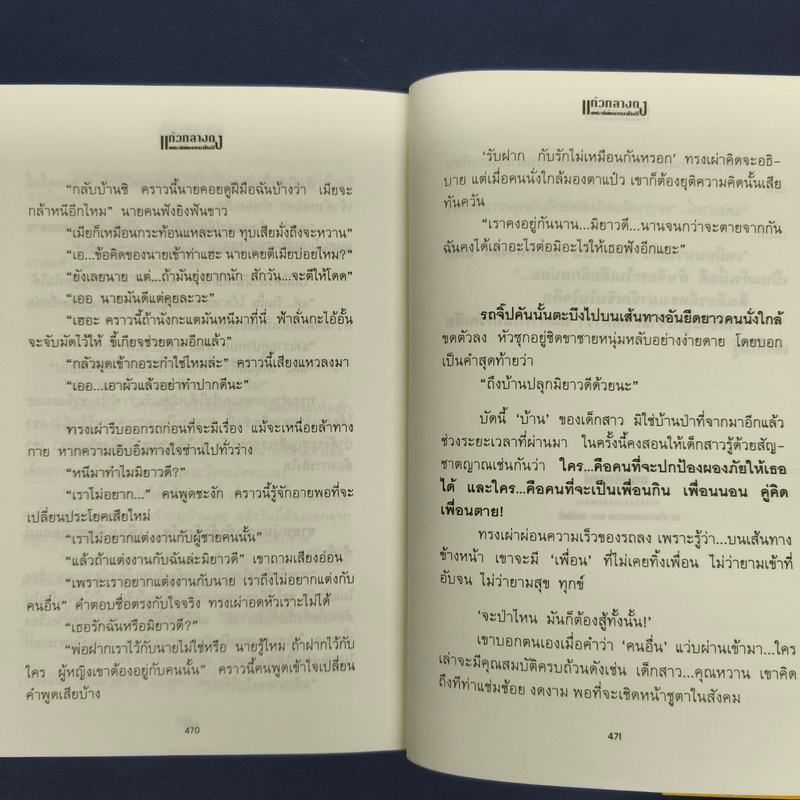 แก้วกลางดง
"กลับบ้านซิ คราวนี้นายคอยดูฝีมือฉันบ้างว่า เมียจะ
กล้าหนีอีกไหม" นายคนฟังยิงฟันขาว
"เมียก็เหมือนกระท้อนแหละนาย ทุบเสียมั่งถึงจะหวาน"
"เอ...ข้อคิดของนายเข้าท่าแฮะ นายเคยตีเมียบ่อยไหม?"
"ยังเลยนาย แต่...ถ้ามันยุ่งยากนัก สักวัน...จะตีให้โดด"
"เออ นายมันดีแต่คุยละวะ"
"เฮอะ คราวนี้ถ้านังกะแตมันหนีมาที่นี่ ฟ้าลั่นกะไอ้อั้น
จะจับมัดไว้ให้ ขี้เกียจช่วยตามอีกแล้ว"
"กลัวมุดเข้ากอระกำใช่ไหมล่ะ" คราวนี้เสียงแหวลงมา
"เออ...เอาผัวแล้วอย่าทำปากดีนะ"
ทรงเผ่ารีบออกรถก่อนที่จะมีเรื่อง แม้จะเหนื่อยล้าทาง
กาย หากความเอิบอิ่มทางใจซ่านไปทั่วร่าง
"หนีมาทำไมมิยาวดี?"
"เราไม่อยาก..." คนพูดชะงัก คราวนี้รู้จักอายพอที่จะ
เปลี่ยนประโยคเสียใหม่
"เราไม่อยากแต่งงานกับผู้ชายคนนั้น"
"แล้วถ้าแต่งงานกับฉันล่ะมิยาวดี" เขาถามเสียงอ่อน
"เพราะเราอยากแต่งงานกับนาย เราถึงไม่อยากแต่งกับ
คนอื่น" คำตอบซื่อตรงกับใจจริง ทรงเผ่าอดหัวเราะไม่ได้
"เธอรักฉันหรือมิยาวดี?"
"พ่อฝากเราไว้กับนายไม่ใช่หรือ นายรู้ไหม ถ้าฝากไว้กับ
ใคร ผู้หญิงเขาต้องอยู่กับคนนั้น" คราวนี้คนพูดเข้าใจเปลี่ยน
คำพูดเสียบ้าง
470
แก้วกลางดง
'รับฝาก กับรักไม่เหมือนกันหรอก' ทรงเผ่าคิดจะอธิ-
บาย แต่เมื่อคนนั่งใกล้มองตาแป๋ว เขาก็ต้องยุติความคิดนั้นเสีย
ทันควัน
"เราคงอยู่กันนาน...มิยาวดี...นานจนกว่าจะตายจากกัน
ฉันคงได้เล่าอะไรต่อมิอะไรให้เธอฟังอีกแยะ"
รถจี๊ปคันนั้นตะบึงไปบนเส้นทางอันยืดยาวคนนั่งใกล้
ขดตัวลง หัวซุกอยู่ชิดขาชายหนุ่มหลับอย่างง่ายดาย โดยบอก
เป็นคำสุดท้ายว่า
"ถึงบ้านปลุกมิยาวดีด้วยนะ"
บัดนี้ 'บ้าน' ของเด็กสาว มิใช่บ้านป่าที่จากมาอีกแล้ว
ช่วงระยะเวลาที่ผ่านมา ในครั้งนี้คงสอนให้เด็กสาวรู้ด้วยสัญ-
ชาตญาณเช่นกันว่า ใคร...คือคนที่จะปกป้องผองภัยให้เธอ
ได้ และใคร...คือคนที่จะเป็นเพื่อนกิน เพื่อนนอน คู่คิด
เพื่อนตาย!
ทรงเผ่าผ่อนความเร็วของรถลง เพราะรู้ว่า...บนเส้นทาง
ข้างหน้า เขาจะมี 'เพื่อน' ที่ไม่เคยทิ้งเพื่อน ไม่ว่ายามเข้าที่
อับจน ไม่ว่ายามสุข ทุกข์
'จะป่าไหน มันก็ต้องสู้ทั้งนั้น!'
เขาบอกตนเองเมื่อคำว่า 'คนอื่น' แว่บผ่านเข้ามา...ใคร
เล่าจะมีคุณสมบัติครบถ้วนดังเช่น เด็กสาว...คุณหวาน เขาคิด
ถึงทีท่าแช่มช้อย งดงาม พอที่จะเชิดหน้าชูตาในสังคม
471